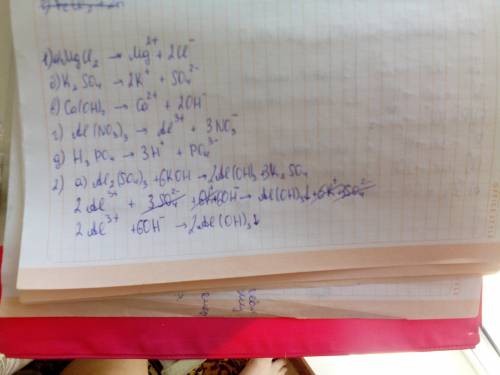 1) а) MgCl₂ → Mg²⁺ + 2Cl⁻
б) K₂SO₄ → 2K⁺ + SO₄²⁻
в) Ca(OH)₂ → Ca²⁺ + 2OH⁻
г) Al(NO₃)₃ → Al³⁺ + 3NO₃⁻
д) H₃PO₄ → 3H⁺ + PO₄³⁻
2) а) Al₂(SO₄)₃ + 6KOH → 2Al(OH)₃ 3K₂SO₄
2Al³⁺ + 3SO₄²⁻ + 6K⁺ 6OH⁻ → Al(OH)₃↓ + 6K⁺ 3SO₄²⁻
2Al³⁺ + 6OH⁻ → 2Al(OH)₃↓